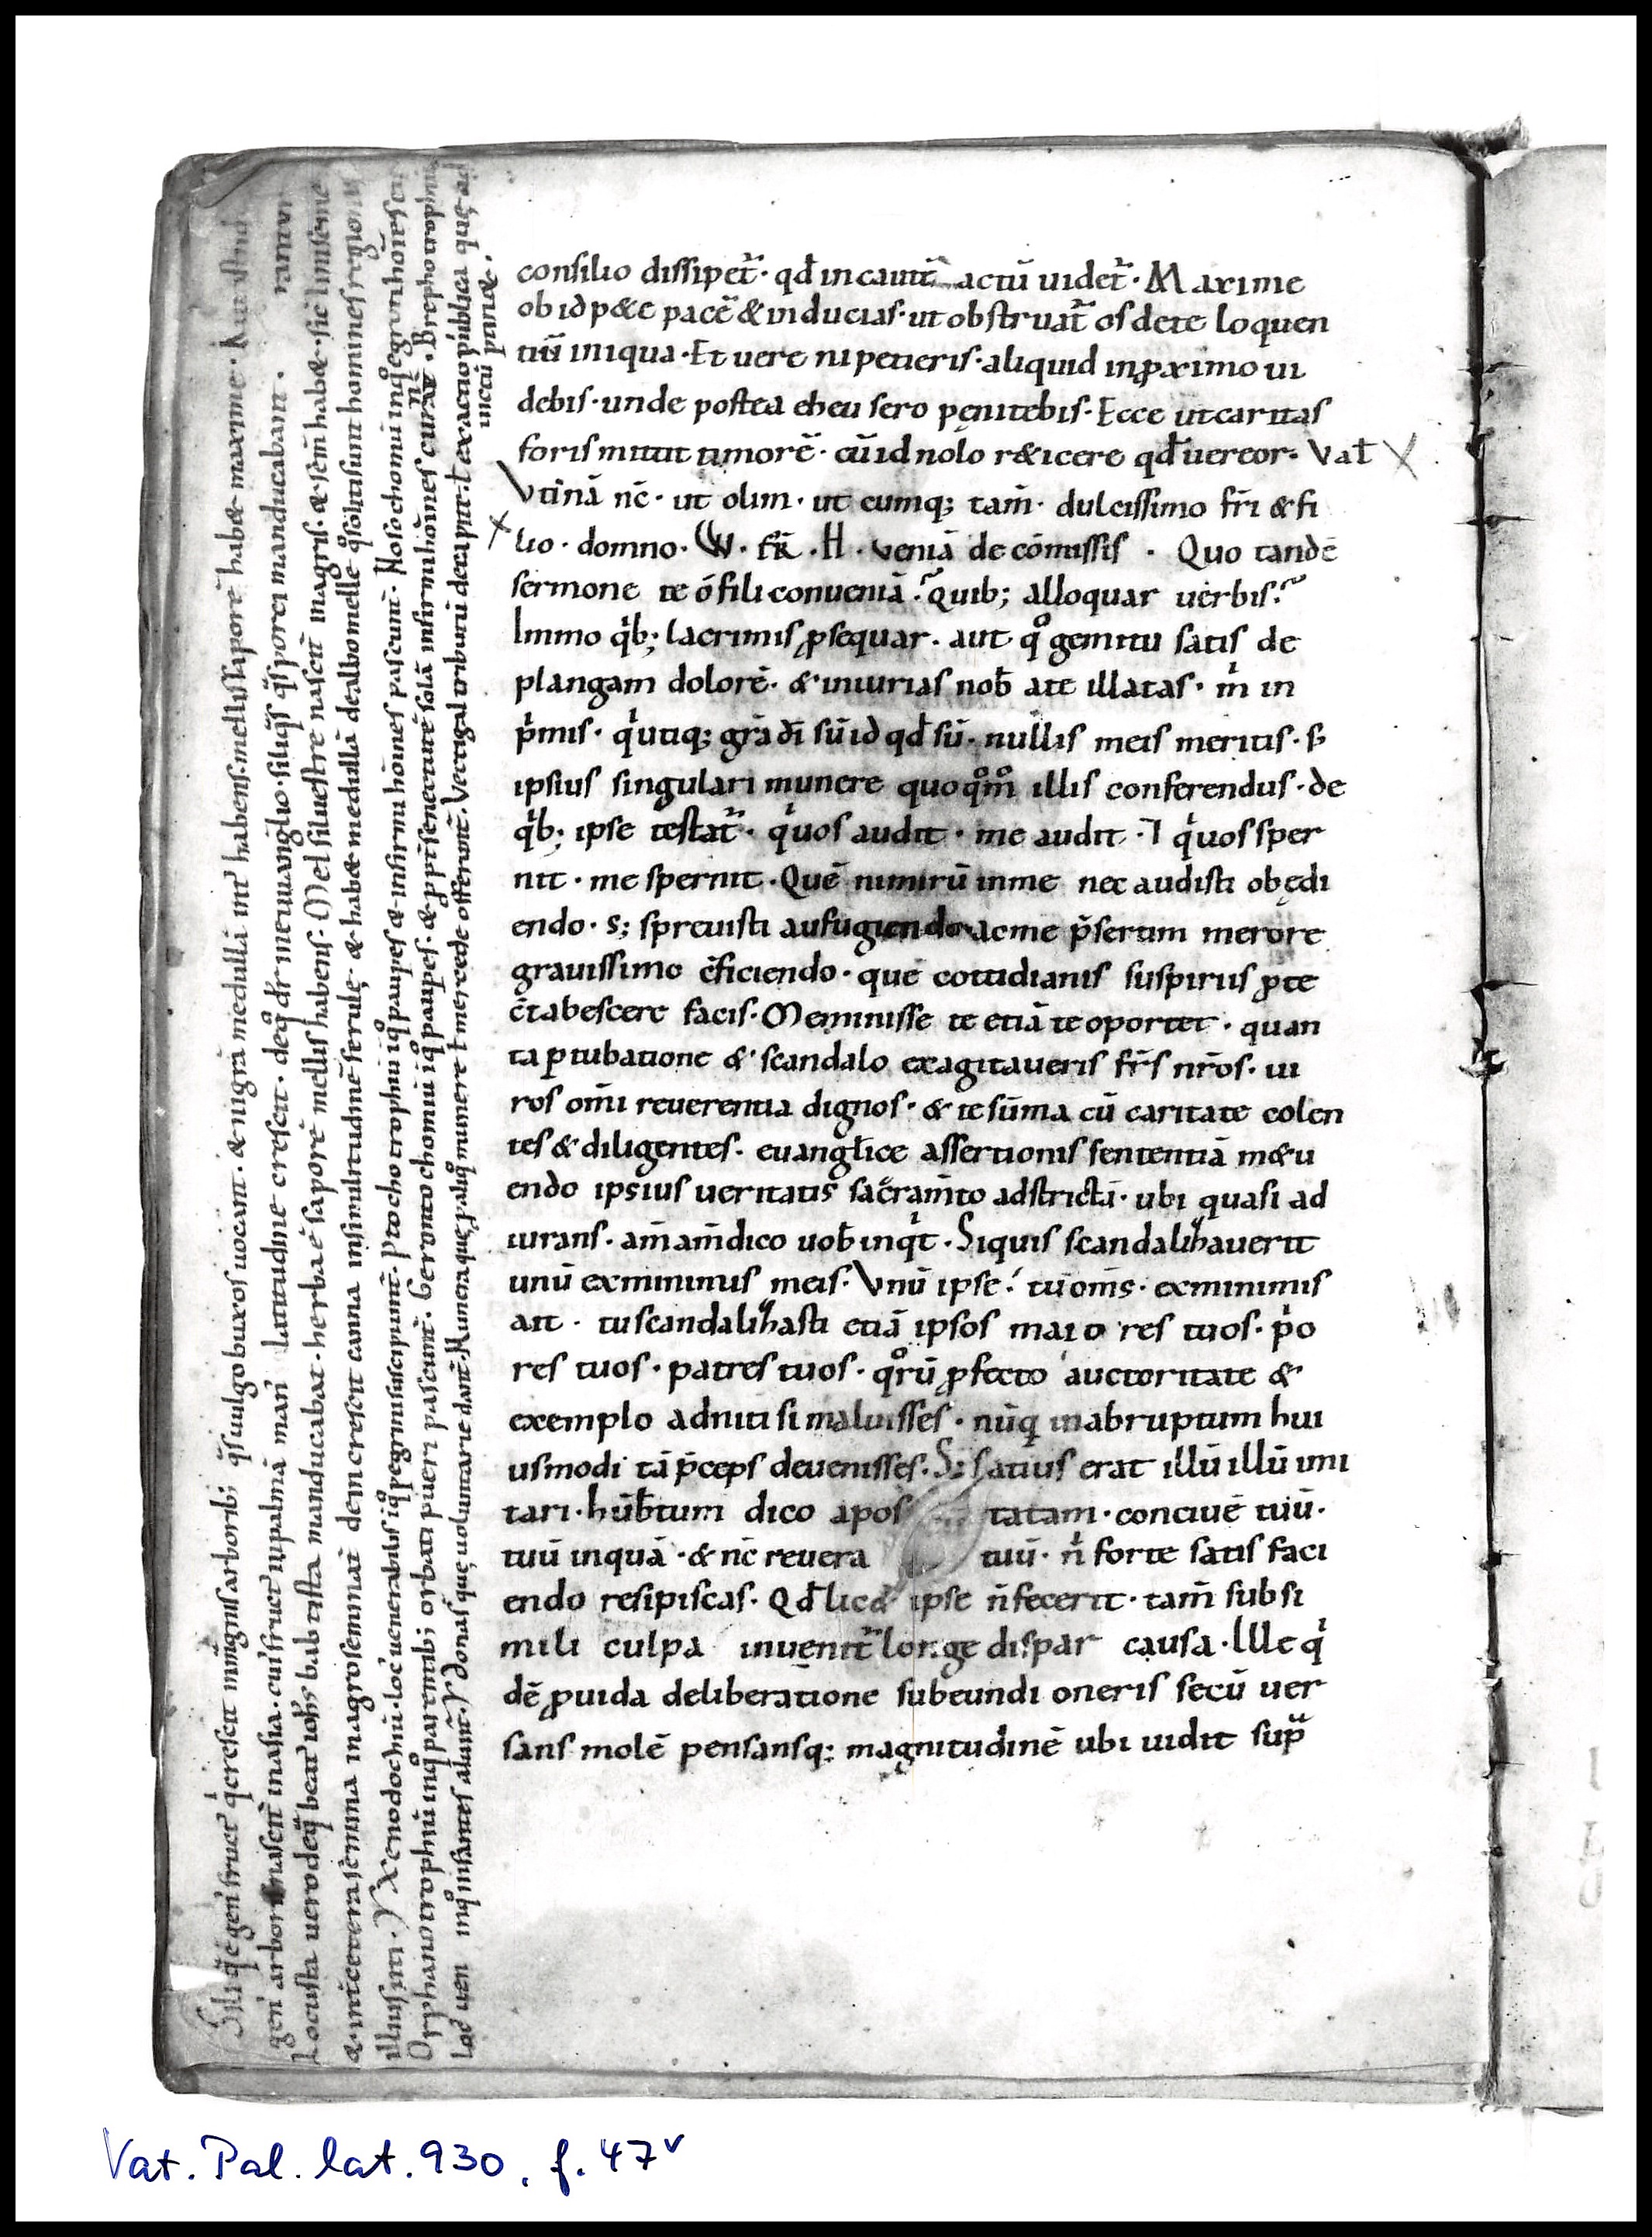 consilio dissipet᷑· qđ incaut̄ actū uidet᷑· Maxime
ob id p&e pacē & inducias· ut obstruat᷑ os de te loquen
tiū iniqua· Et uere ni petieris· aliquid inꝓximo ui
debis· unde postea eheu sero pęnitebis· Ecce ut caritas
foris mittit timorē· cū id nolo r&icere qđ uereor· Val̄
Vtinā nc̄· ut olim· ut cumq; tam̄· dulcissimo fr̄i & fi
lio· domno· W· fr̄· H· ueniā de cōmissis· Quo tandē
sermone te ó fili conueniā? Quib; alloquar uerbis?
Immo qͥb; lacrimis ꝓsequar· aut qͦ gemitu satis de
plangam dolorē· & iniurias nob̄ a te illatas· m̄ in
pͥmis· qͥ utiq; grā dī sū id qđ sū· nullis meis meritis· s;
ipsius singulari munere quoqͦm̄ illis conferendus· de
qͥb; ipse testat᷑· qͥ uos audit· me audit· ⁊ qͥ uos sper
nit· me spernit· Quē nimirū in me nec audisti obędi
endo· s; spreuisti aufugiendo· ac me p̄sertim merore
grauissimo c̄ficiendo· que cottidianis suspiriis ꝓ te
c̄tabescere facis· Meminisse te etiā te oportet· quan
ta ꝑtubatione & scandalo exagitaueris fr̄s nr̄os· ui
ros om̄i reuerentia dignos· & te sūma cū caritate colen
tes & diligentes· euangl̄ice assertionis sententiā m&u
endo ipsius ueritatis sacram̄to adstrictā· ubi quasi ad
iurans· am̄ am̄ dico uob̄ inqͥt· Siquis scandalizauerit
unū ex minimis meis· Vnū ipse· tu om̄s· ex minimis
ait· tu scandalizasti etiā ipsos maiores tuos· pͥo
res tuos· patres tuos· qͦrū ꝓfecto auctoritate &
exemplo adniti si maluisses· nūq in abruptum hui
usmodi tā p̄ceps deuenisses· S; satius erat illū illū imi
tari· hūb̄tum dico apostatam· conciuē tuū·
tuū inquā· & nc̄ reuera tuū· n̄ forte satis faci
endo resipiscas· Qđ lic& ipse n̄ fecerit· tam̄ sub si
mili culpa inuenit᷑ longe dispar causa· Ille qͥ
dē ꝓuida deliberatione subeundi oneris secū uer
sans molē pensansq; magnitudinē ubi uidit supᷓ
Siliq̄ ē gen᷒ fruct᷒ qͥ crescit in magnis arborib; qͣs uulgo buxos uocant· & nigrā medullā int᷒ habens· mellis saporē hab& maxime·
gen᷒ arboris nascit᷑ in asia· cui᷒ fruct᷒ iu palmā man᷒ latitudine crescit· de qͦ dr̄ in euuanglio· siliqͥs qͣs porci manducabant·
Locusta uero de qͣ beat᷒ ioh̄s babtista manducabat· herba ē saporē mellis habens· Mel siluestre nascit᷑ in agris· & sem̄ hab&· sic
illius in· Xenodochiū· loc᷒ uenerabilis in qͦ peregrini suscipiunt᷑· Ptochotrophiū in qͦ pauꝑes & infirmi hōines pascunt᷑· Nosochomiū in qͦ egroti hōies
Orphanotrophiū in qͦ parentib; orbati pueri pascunt᷑· Gerontochomiū in qͦ pauꝑes· & ꝓpt᷒ senectutē solā infirmi hōines curant᷑· Brephotrophiū
in qͦ infantes alunt᷑· Dona sūt quę uoluntarie dant᷑· Munera quę ꝓ aliqͦ munere ł mercede offerunt᷑· Vectigal tributū
uictū patriae·
Vat. Pal. lat. 930, f. 47ᵛ